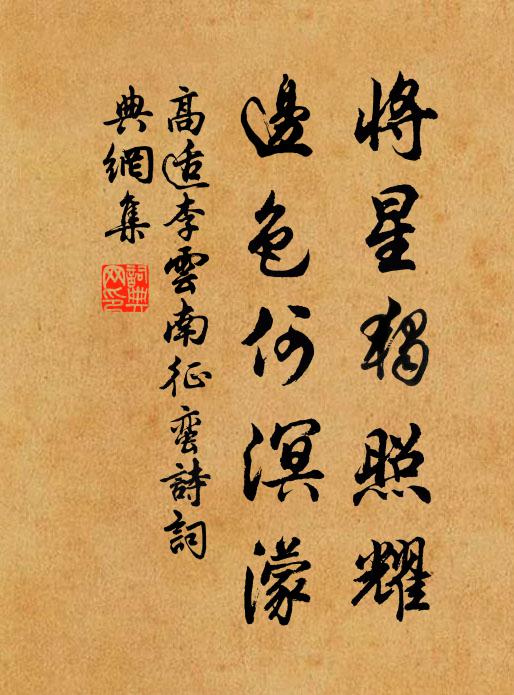 將星獨照耀
邊色何溟濛
高适李雲南征蠻詩詞
典網集
詞典網印